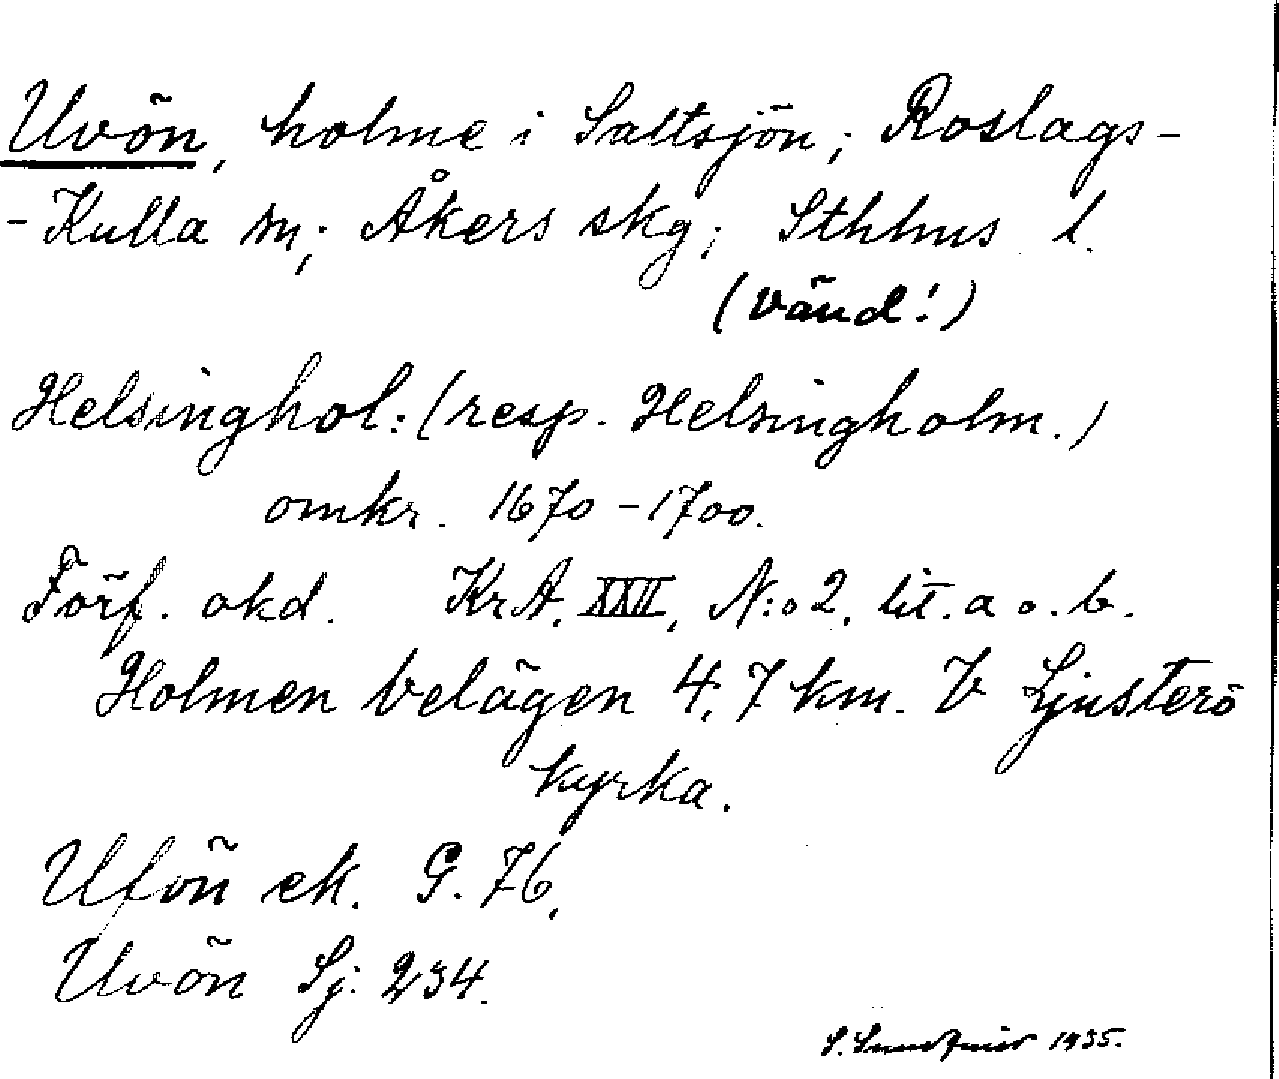 Uvön, holme i Saltsjön; Roslags-
-Kulla sn; Åkers skg; Sthlms l.
(vänd!)
Helsinghol: (resp. Helsingholm.)
omkr. 1670-1700.
Förf. okd. KrA. XXII, N:o 2, lit. a o. b.
Holmen belägen 4,7 km. V Ljusterö
kyrka.
Ufön ek. G. 76.
Uvön Sj: 234.
S. 1935.